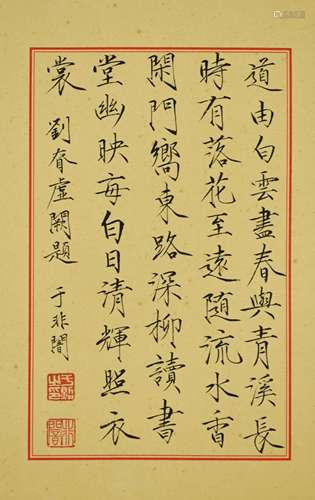 道由白雲盡春與青溪長
時有落花至遠隨流水香
閑門嚮東路深柳讀書
堂幽映每白日清輝照衣
裳 劉眘虛闕題 于非闇
非闇